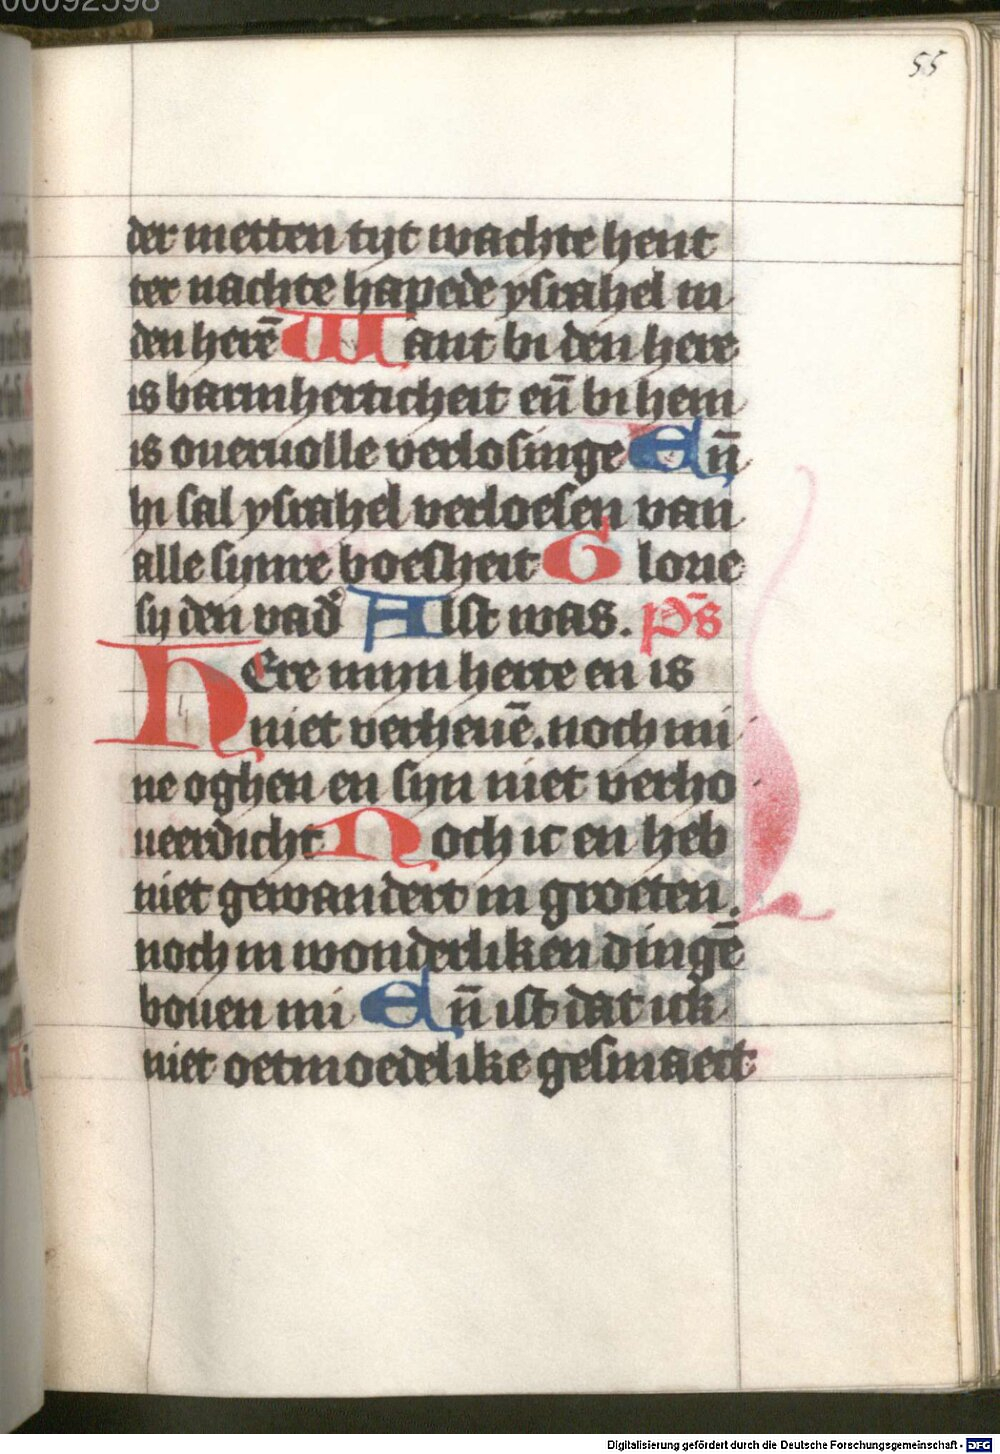 00092598
55
der metten tijt wachte hent
ter nachte hapede ysrahel in
den herē Want bi den here
is barmherticheit en̄ bi hem
is oueruolle verlosinge En̄
hi sal ysrahel verloesen van
alle sijnre boesheit Glorie
sij den vad' Alst was. ps̄
HEre mijn herte en is
niet verheuē. noch mi
ne oghen en sijn niet verho
ueerdicht Noch ic en heb
niet gewandert in groeten.
noch in wonderliken dingē
bouen mi En̄ ist dat ick
niet oetmoedelike gesmaect
Digitalisierung gefördert durch die Deutsche Forschungsgemeinschaft - DFG